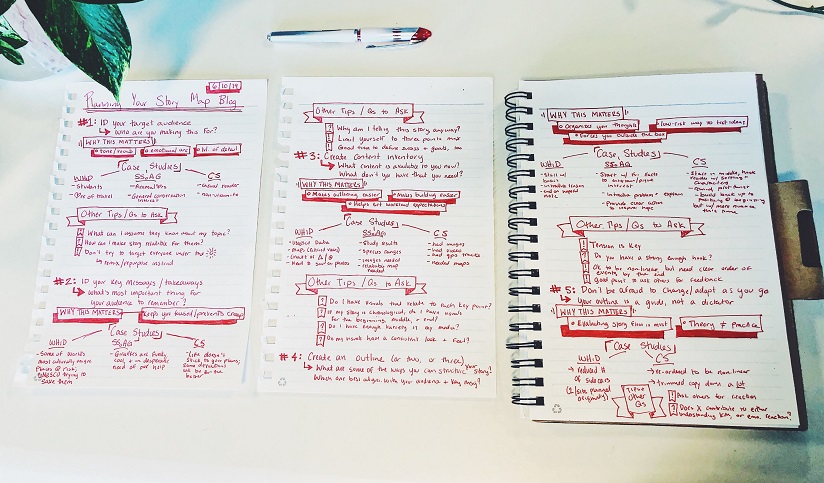 6/10/19
Planning Your Story Map Blog
#1: ID your target audience
↳ Who are you making this for?
WHY THIS MATTERS
• tone/words
• emotional arc
• lvl. of detail
Case Studies
WHiD
SS,AG
CS
- Students
- General
- Casual reader
- Ppl of travel
- General conservation interest
- Nonviolent
Other Tips / Qs to Ask
? What can I assume they know about my topic?
? How can I make story relatable for them?
! Don't try to target everyone under the
↳ Rewrite/repurpose instead
#2: ID your key messages / takeaways
↳ What's most important thing for
your audience to remember?
WHY THIS MATTERS
Keeps you focused/prevents creep
Case Studies
WHiD
SS,AG
CS
- Some of world's
most culturally
places at risk;
UNESCO trying to
save them
- Giraffes are
cool, + in desperate
need of our help
- Life doesn't
stick to your plans;
some deviations
will be for the
better
Other Tips / Qs to Ask
? Why am I telling this story anyway?
! Limit yourself to three points max
! Good time to define success + goals, too
#3: Create content inventory
↳ What content is available to you now?
What don't you have that you need?
WHY THIS MATTERS
• Makes authoring easier
• Makes building easier
• Helps set workload expectations
Case Studies
WHiD
SS,AG
CS
- UNESCO Data
- Study results
- had images
- Species ranges
- had video
- Images needed
- had GPS tracks
- needed maps
Other Tips / Qs to Ask
? Do I have visuals that relate to each key point?
? If my story is chronological, do I have visuals
for the beginning, middle, + end?
? Do I have enough variety in my media?
? Do my visuals have a consistent look + feel?
#4: Create an outline (or two, or three)
↳ What are some of the ways you can structure your story?
Which one best aligns with your audience + key msg?
WHY THIS MATTERS
• Organizes your thoughts
• low-risk way to test ideas
• Forces you outside the box
Case Studies
WHiD
SS,AG
CS
- Start w/
- Start w/ fun facts
- Start in middle, then
- Introduce problem + explain
- Provide clear action
to inspire hope
- build back up to
Other Tips / Qs to Ask
! Tension is key
? Do you have a strong enough hook?
! Ok to be non-linear but need clear order of
events by the end
! Good point to ask others for feedback
#5: Don't be afraid to change/adapt as you go
↳ Your outline is a guide, not a dictator
WHY THIS MATTERS
• Evaluating story flow is must
• Theory ≠ practice
Case Studies
WHiD
CS
→ reduced # of
→ re-ordered to be non-linear
→ trimmed copy down a lot
Tips + Other Qs
! Ask others for reaction
? Does X contribute to either
understanding key, or emo. reaction?